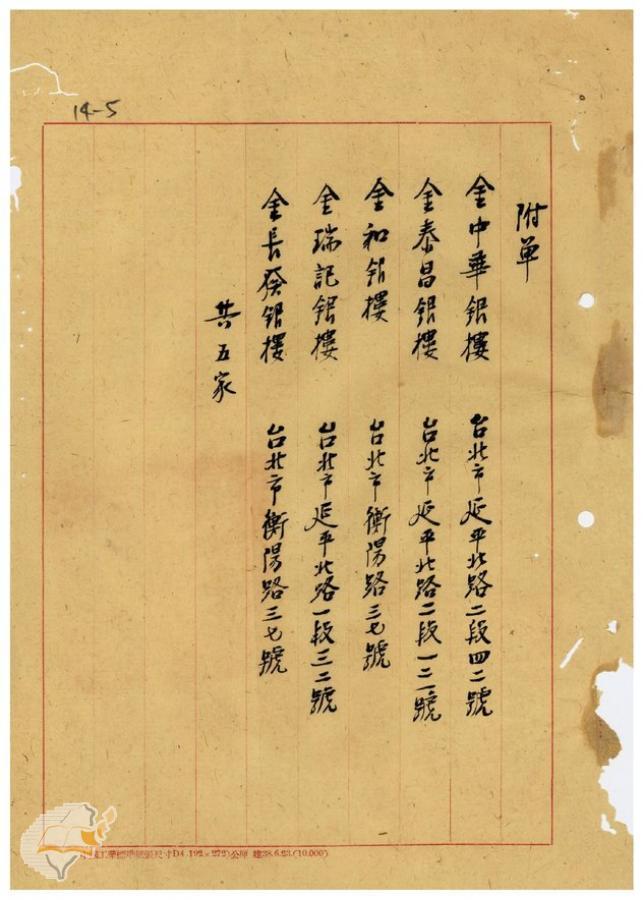 14-5
附單
金中華銀樓 台北市延平北路二段四二號
金泰昌銀樓 台北市延平北路二段一二一號
金和銀樓 台北市衡陽路三七號
金瑞記銀樓 台北市延平北路一段三二號
金長發銀樓 台北市衡陽路三七號
共五家
尺寸D4(192×272)公厘 38.6.23.(10.000)